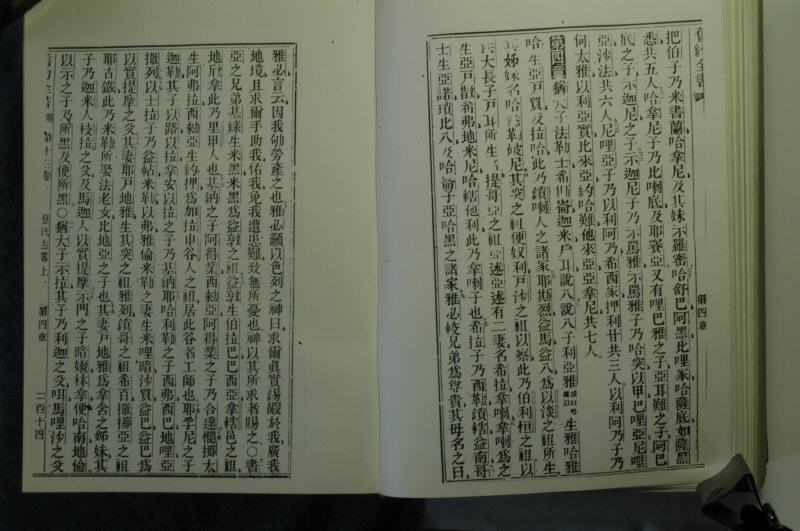 舊約全書
把伯子乃米書蘭哈拿尼及其妹示羅密哈舒巴阿黑比哩家哈薩底如薩黑
悉共五人哈拿尼子乃比喇底及耶賽亞又有哩巴雅之子亞耳難之子阿巴
底之子示迦尼之子示迦尼子乃示馬雅示馬雅子乃哈突以甲巴哩亞尼哩
亞沙法共六人尼哩亞子乃以利阿乃希西家押利甘共三人以利阿乃子乃
何太雅以利亞實比來亞約哈難他來亞亞拿尼共七人
第四章 猶大子法勒士希斯崙迦米戶耳說八說八子利亞雅 生雅哈雅
哈生亞戶買及拉哈此乃鎖喇人之諸家耶斯烈益馬益八為以淡之祖所生
其姊妹名哈悉勒破尼其突之祖便奴利戶沙之祖以察此乃伯利恒之祖以
大長子戶耳所生提哥亞之祖亞述亞述有二妻名希拉拿喇拿喇為之
生亞戶散希弗地米尼哈轄他利此乃拿喇子也希拉子乃西勒鎖轄益南哥
士生亞諾瑣比八及哈倫子亞哈黑之諸家雅必較兄弟為尊貴其母名之曰
第四章
雅必言云因我劬勞產之也雅必籲以色列之神曰求爾眞實錫嘏於我廣我
地境且求爾手助我佑我免我遭患難致無所憂也神以其所求者賜之〇書
亞之兄弟基綠生米黑米黑為益敦之祖益敦生伯拉巴巴西亞拿轄邑之祖
地欣拿此乃里甲人也基納之子阿得業西勅亞阿得業之子乃合達憫挪太
生阿弗拉西勅亞生約押為加拉申谷人之祖居此谷者工師也耶孚尼之子
迦勒其子以路以拉拿安以拉之子乃基納耶哈利勒之子西弗西巴地哩亞
撒列以士拉子乃益帖米勒以弗雅倫米勒之妻生米哩暗沙買益巴益巴為
以實提摩之父其妻耶戶地雅生其突之祖雅列鎖哥之祖希百撒挪亞之祖
耶古鐵此乃米勒所娶法老女比地亞之子也其妻戶地雅為拿含之姊妹其
子乃迦米人枝拉之父及馬迦人以實提摩示門之子暗嫩林拿便哈南地倫
以示之子乃所黑及便所黑〇猶大子示拉其子乃利迦之父咡馬哩沙之父
第十三卷 歷代志畧上 第四章 二百十四